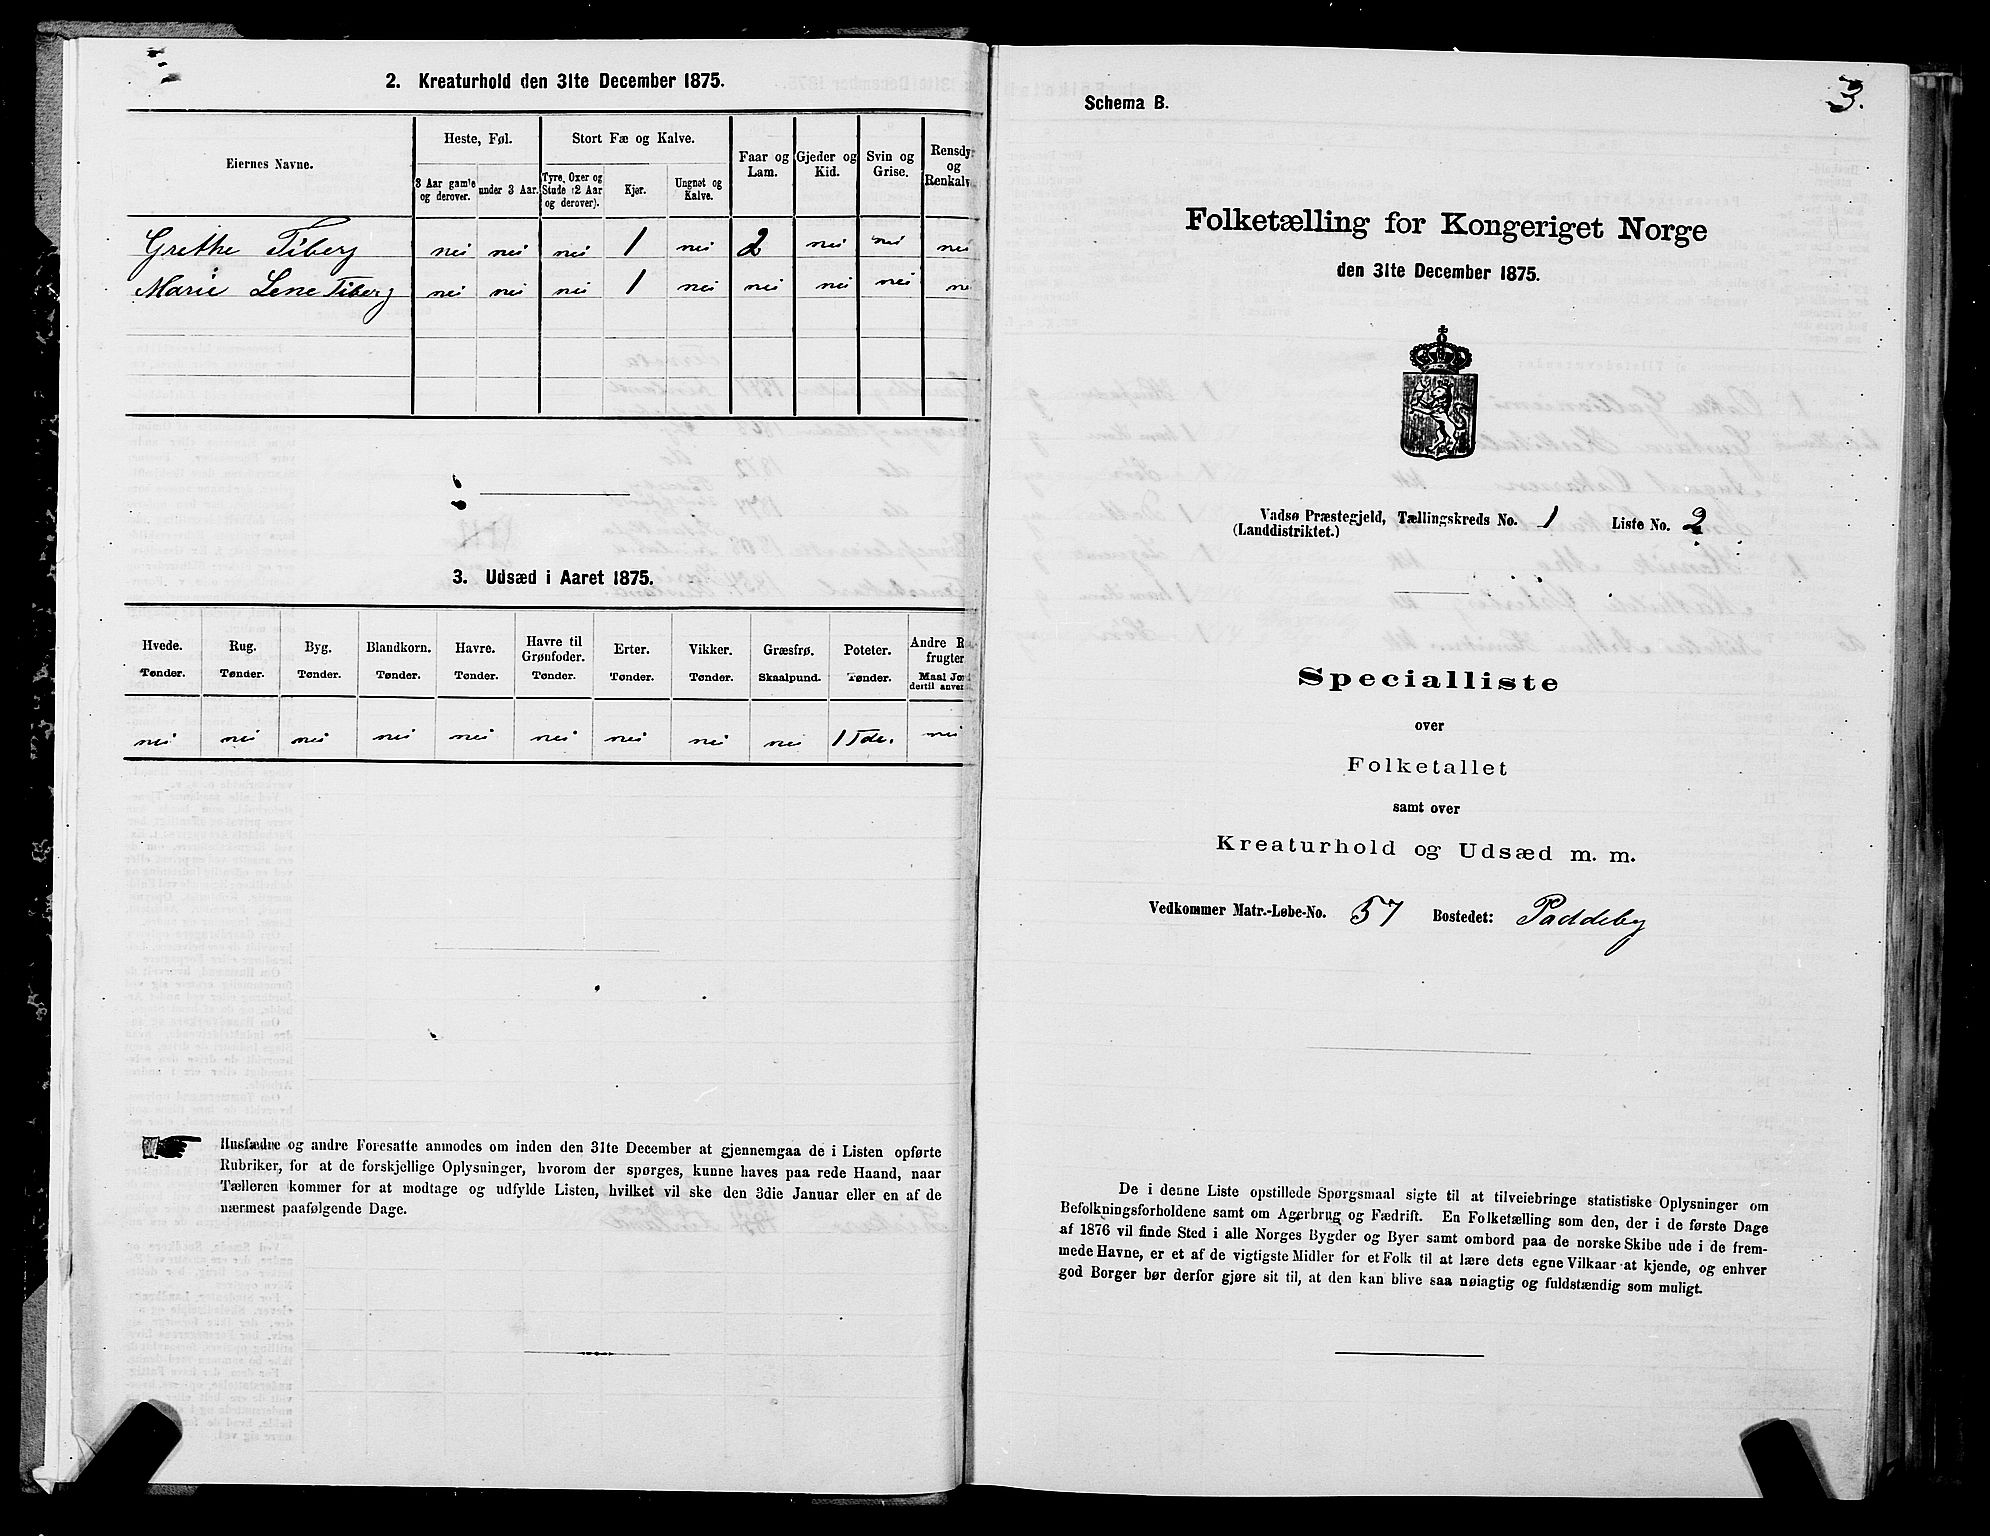 2. Kreaturhold den 31te December 1875.
Eiernes Navne.
Heste, Føl.
Stort Fæ og Kalve.
Faar og Lam.
Gjeder og Kid.
Svin og Grise.
Rensdy
og
Renkalv
3 Aar gamle og derover.
under 3 Aar.
Tyre, Oxer og Stude (2 Aar og derover).
Kjør.
Ungnøt og Kalve.
Grethe Tiberg nei nei nei 1 nei 2 nei nei nei
Marie Lene Tiberg nei nei nei 1 nei nei nei nei
3. Udsæd i Aaret 1875.
Hvede. Rug. Byg. Blandkorn. Havre. Havre til Grønfoder. Erter. Vikker. Græsfrø. Poteter. Andre R
frugter
Tønder. Tønder. Tønder. Tønder. Tønder. Tønder. Tønder. Tønder. Skaalpund. Tønder. Maal Jord
dertil anven
nei nei nei nei nei nei nei nei nei 1 Tde. nei
Husfædre og andre Foresatte anmodes om inden den 31te December at gjennemgaa de i Listen opførte
Rubriker, for at de forskjellige Oplysninger, hvorom der spørges, kunne haves paa rede Haand, naar
Tælleren kommer for at modtage og udfylde Listen, hvilket vil ske den 3die Januar eller en af de
nærmest paafølgende Dage.
3.
Schema B.
Folketælling for Kongeriget Norge
den 31te December 1875.
Vadsø Præstegjeld, Tællingskreds No. 1 Liste No. 2
(Landdistriktet.)
Specialliste
over
Folketallet
samt over
Kreaturhold og Udsæd m. m.
Vedkommer Matr.-Løbe-No. 57 Bostedet: Paddeby
De i denne Liste opstillede Spørgsmaal sigte til at tilveiebringe statistiske Oplysninger om
Befolkningsforholdene samt om Agerbrug og Fædrift. En Folketælling som den, der i de første Dage
af 1876 vil finde Sted i alle Norges Bygder og Byer samt ombord paa de norske Skibe ude i de frem-
mede Havne, er et af de vigtigste Midler for et Folk til at lære dets egne Vilkaar at kjende, og enhver
god Borger bør derfor gjøre sit til, at den kan blive saa nøiagtig og fuldstændig som muligt.